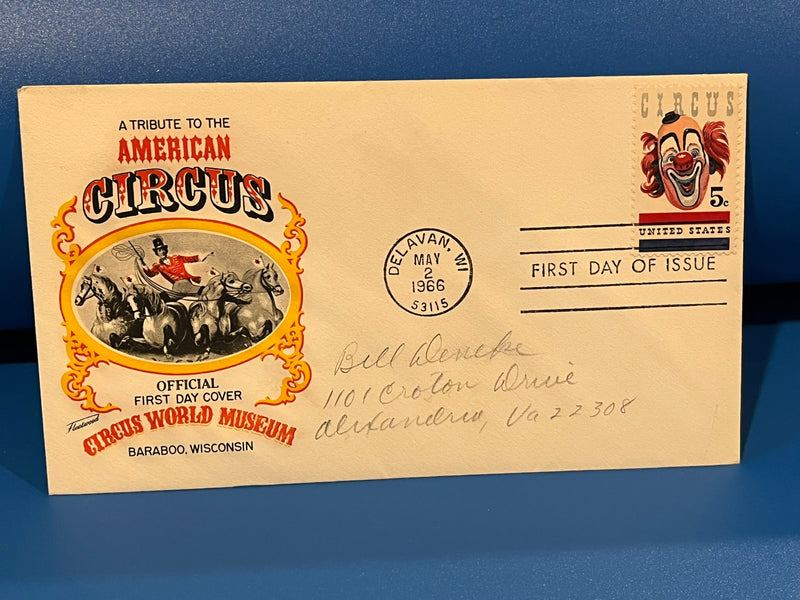 A TRIBUTE TO THE
AMERICAN
CIRCUS
OFFICIAL
FIRST DAY COVER
Fleetwood
CIRCUS WORLD MUSEUM
BARABOO, WISCONSIN
CIRCUS
5c
UNITED STATES
DELAVAN, WI
MAY
2
1966
53115
FIRST DAY OF ISSUE
Bill Deneke
1101 Croton Drive
Alexandria, Va 22308